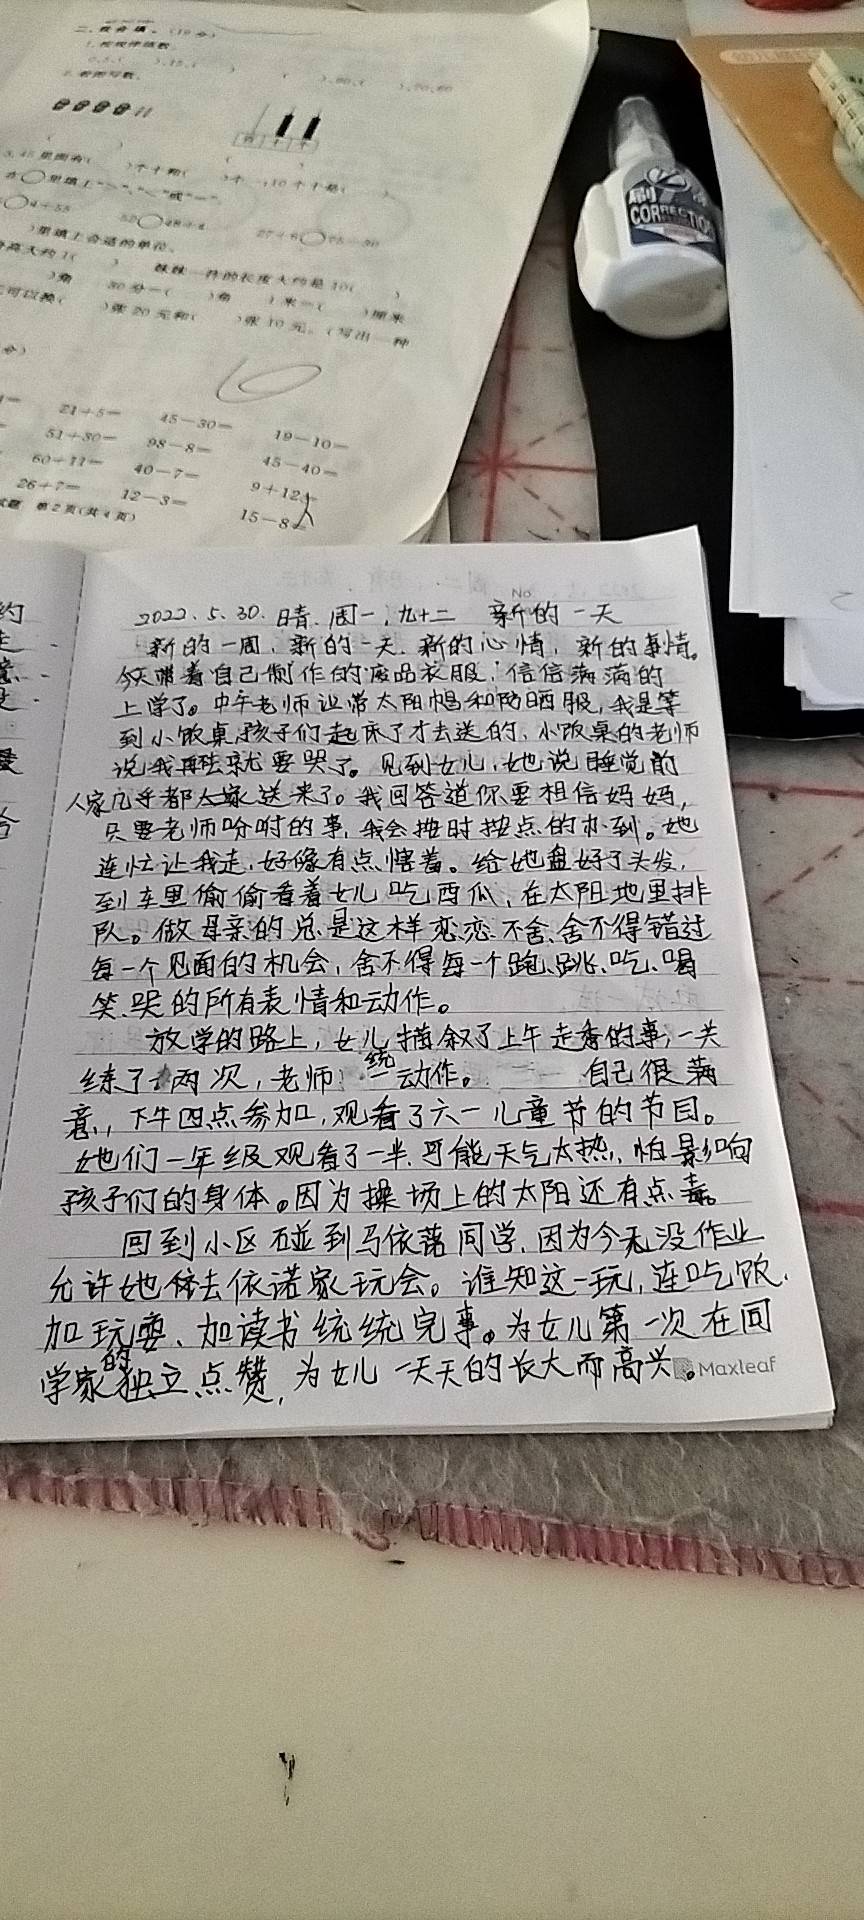 二、我会填。(19分)
1.按规律填数。
2.看图写数。
3.45里面有( )个十和( )个一,10个十是( )
在○里填上“>”、“<”或“=”。
○4+55 52○48+4 27+6○75-30
)里填上合适的单位。
高大约1( ) 妹妹一拃的长度大约是10( )
)角 30分=( )角 1米=( )厘米
可以换( )张20元和( )张10元。(写出一种
分)
21+5= 45-30= 19-10=
51+30= 98-8= 45-40=
60+11= 40-7= 9+12=
26+7= 12-3= 15-8=
试题 第2页(共4页)
CORRECTION
No.
2022.5.30.晴.周一,九十二 新的一天
新的一周,新的一天.新的心情,新的事情。
今天带着自己制作的废品衣服,信信满满的
上学了。中午老师让带太阳帽和防晒服,我是等
到小饭桌孩子们起床了才去送的,小饭桌的老师
说我再不去就要哭了。见到女儿,她说睡觉前
人家几乎都大家送来了。我回答道你要相信妈妈,
只要老师吩咐的事,我会按时按点的办到。她
连忙让我走,好像有点愭着。给她盘好了头发,
到车里偷偷看着女儿吃西瓜,在太阳地里排
队。做母亲的总是这样恋恋不舍、舍不得错过
每一个见面的机会,舍不得每一个跑、跳、吃、喝
笑、哭的所有表情和动作。
放学的路上,女儿描叙了上午走秀的事,一共
练了两次,老师统一动作。 自己很满
意,下午四点参加,观看了六一儿童节的节目。
她们一年级观看了一半.可能天气太热,怕影响
孩子们的身体。因为操场上的太阳还有点毒。
回到小区碰到马依诺同学,因为今天没作业
允许她去依诺家玩会。谁知这一玩,连吃饭、
加玩耍、加读书统统完事。为女儿第一次在同
学家的独立点赞,为女儿一天天的长大而高兴。
Maxleaf